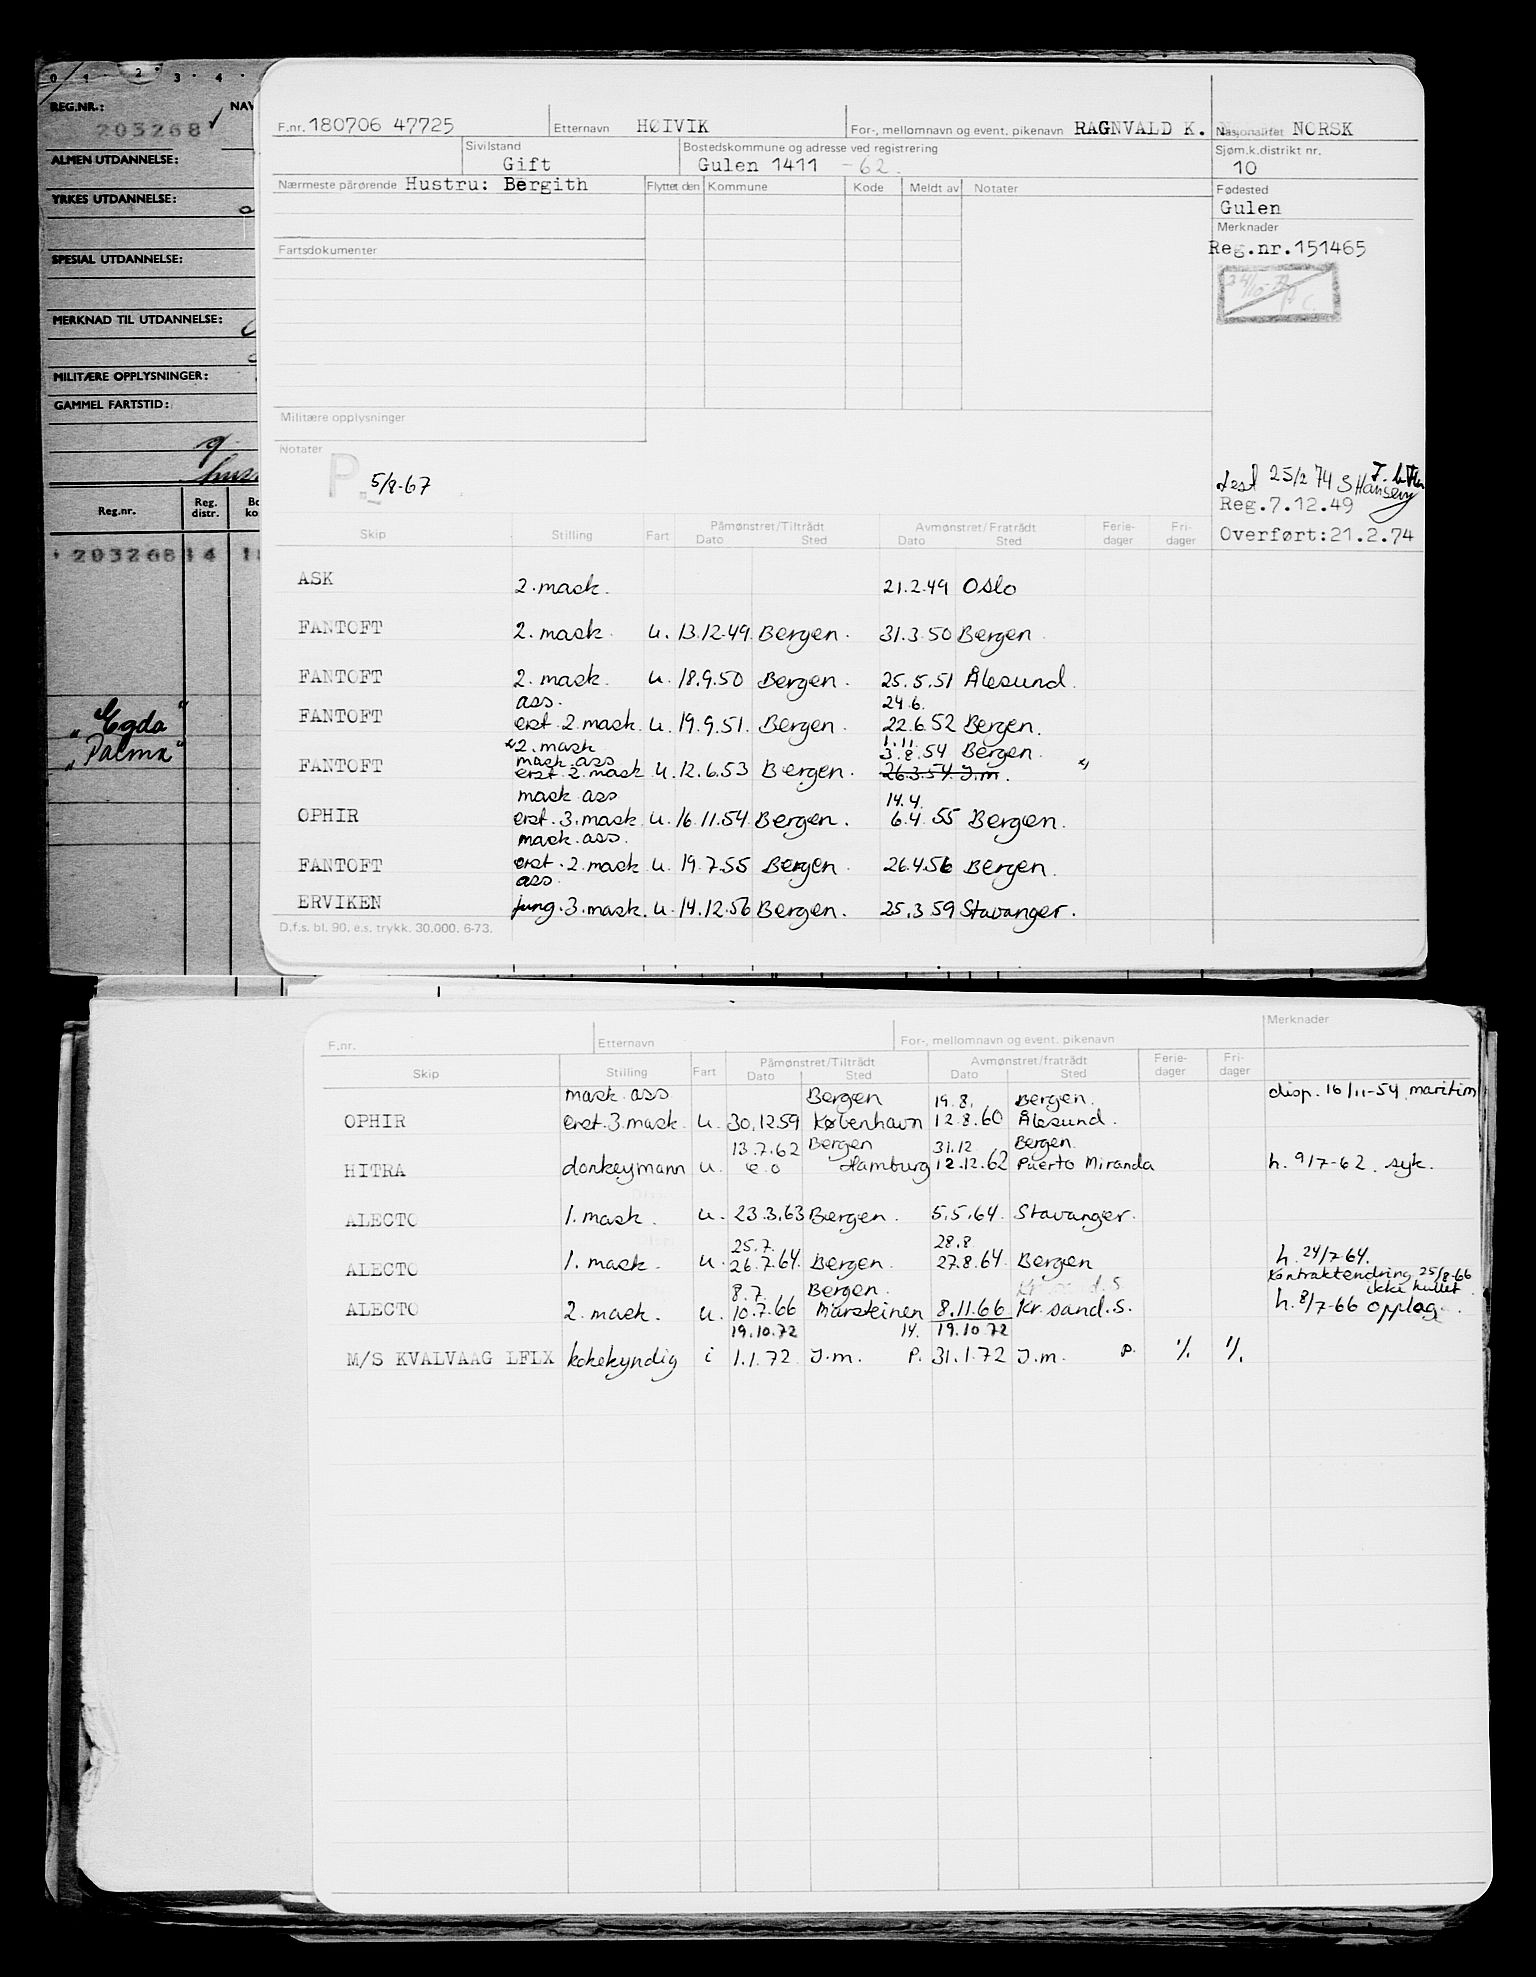 0 1 2 3 4
REG.NR.: NAV
203268
ALMEN UTDANNELSE:
YRKES UTDANNELSE:
SPESIAL UTDANNELSE:
MERKNAD TIL UTDANNELSE:
MILITÆRE OPPLYSNINGER:
GAMMEL FARTSTID:
Reg.nr. Reg. distr. Bo ko
203268 14
„Egda"
„Palma"
F.nr. 180706 47725 Etternavn HØIVIK For-, mellomnavn og event. pikenavn RAGNVALD K. Nasjonalitet NORSK
Sivilstand Gift Bostedskommune og adresse ved registrering Gulen 1411 -62. Sjøm.k.distrikt nr. 10
Nærmeste pårørende Hustru: Bergith Flyttet den Kommune Kode Meldt av Notater Fødested
Gulen
Merknader
Fartsdokumenter Reg.nr.151465
Militære opplysninger
Notater
P. 5/8-67
25/2 74 S Hansen
Reg.7.12.49
Overført:21.2.74
Skip Stilling Fart Påmønstret/Tiltrådt Dato Sted Avmønstret/Fratrådt Dato Sted Ferie-dager Fri-dager
ASK 2.mask. 21.2.49 Oslo
FANTOFT 2. mask. u. 13.12.49 Bergen. 31.3.50 Bergen.
FANTOFT 2. mask. u. 18.9.50 Bergen. 25.5.51 Ålesund.
ass. 24.6.
FANTOFT erst. 2. mask. u. 19.9.51. Bergen. 22.6.52 Bergen.
2. mask 1.11.
mask.ass 3.8.54 Bergen.
FANTOFT erst. 2. mask u. 12.6.53 Bergen. 26.3.54 J.m.
mask ass 14.4.
OPHIR erst. 3. mask u. 16.11.54 Bergen. 6.4.55 Bergen.
mask.ass.
FANTOFT erst. 2. mask u. 19.7.55 Bergen. 26.4.56 Bergen.
ass.
ERVIKEN jung. 3. mask. u. 14.12.56 Bergen. 25.3.59 Stavanger.
D.f.s. bl. 90. e.s. trykk. 30.000. 6-73.
F.nr. Etternavn For-, mellomnavn og event. pikenavn Merknader
Skip Stilling Fart Påmønstret/Tiltrådt Dato Sted Avmønstret/fratrådt Dato Sted Ferie-dager Fri-dager
mask.ass Bergen 19.8. Bergen. disp. 16/11-54 maritim
OPHIR erst. 3. mask. u. 30.12.59 København 12.8.60 Ålesund.
13.7.62 Bergen 31.12 Bergen.
HITRA donkeymann u. e.o Hamburg 12.12.62 Puerto Miranda h. 9/7-62. syk.
ALECTO 1. mask. u. 23.3.63 Bergen. 5.5.64. Stavanger.
25.7. 28.8
ALECTO 1. mask. u. 26.7.64. Bergen. 27.8.64. Bergen h. 24/7-64.
8.7. Bergen. Kontraktendring 25/8-66
ikke hullet.
ALECTO 2. mask. u. 10.7.66 Marsteinen 8.11.66 Kr.sand.S. h. 8/7-66 opplag.
19.10.72 14. 19.10.72
M/S KVALVAAG LFLX kokekyndig i 1.1.72 J.m. P. 31.1.72 J.m. P. ٪ ٪